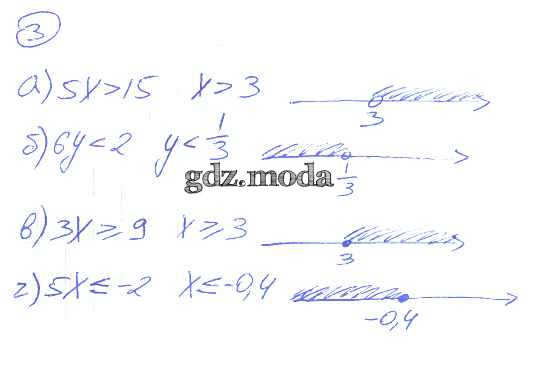 3
а) 5x>15 x>3
3
б) 6y<2 y<1/3
1/3
gdz.moda
в) 3x≥9 x≥3
3
г) 5x≤-2 x≤-0,4
-0,4